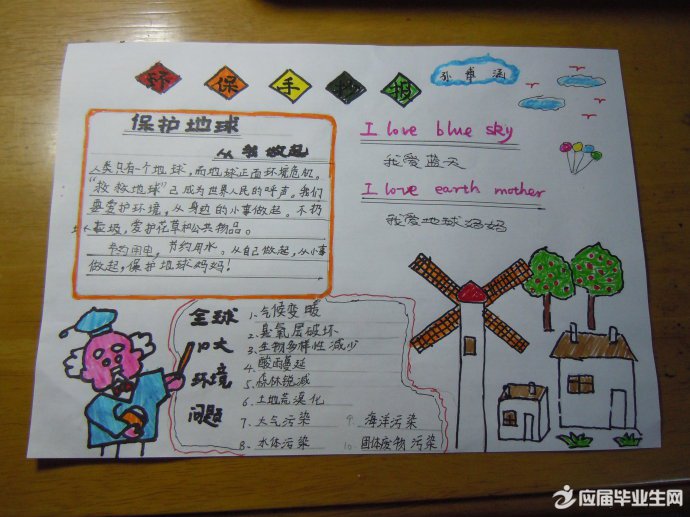 环保手抄报
孙卓涵
保护地球
从我做起
人类只有一个地球,而地球正面环境危机。
“救救地球”已成为世界人民的呼声。我们
要爱护环境,从身边的小事做起。不扔
垃圾,爱护花草和公共物品。
节约用电,节约用水。从自己做起,从小事
做起,保护地球妈妈!
I love blue sky
我爱蓝天
I love earth mother
我爱地球妈妈
全球
十大
环境
问题
1.气候变暖
2.臭氧层破坏
3.生物多样性减少
4.酸雨蔓延
5.森林锐减
6.土地荒漠化
7.大气污染
8.水体污染
9.海洋污染
10.固体废物污染
应届毕业生网